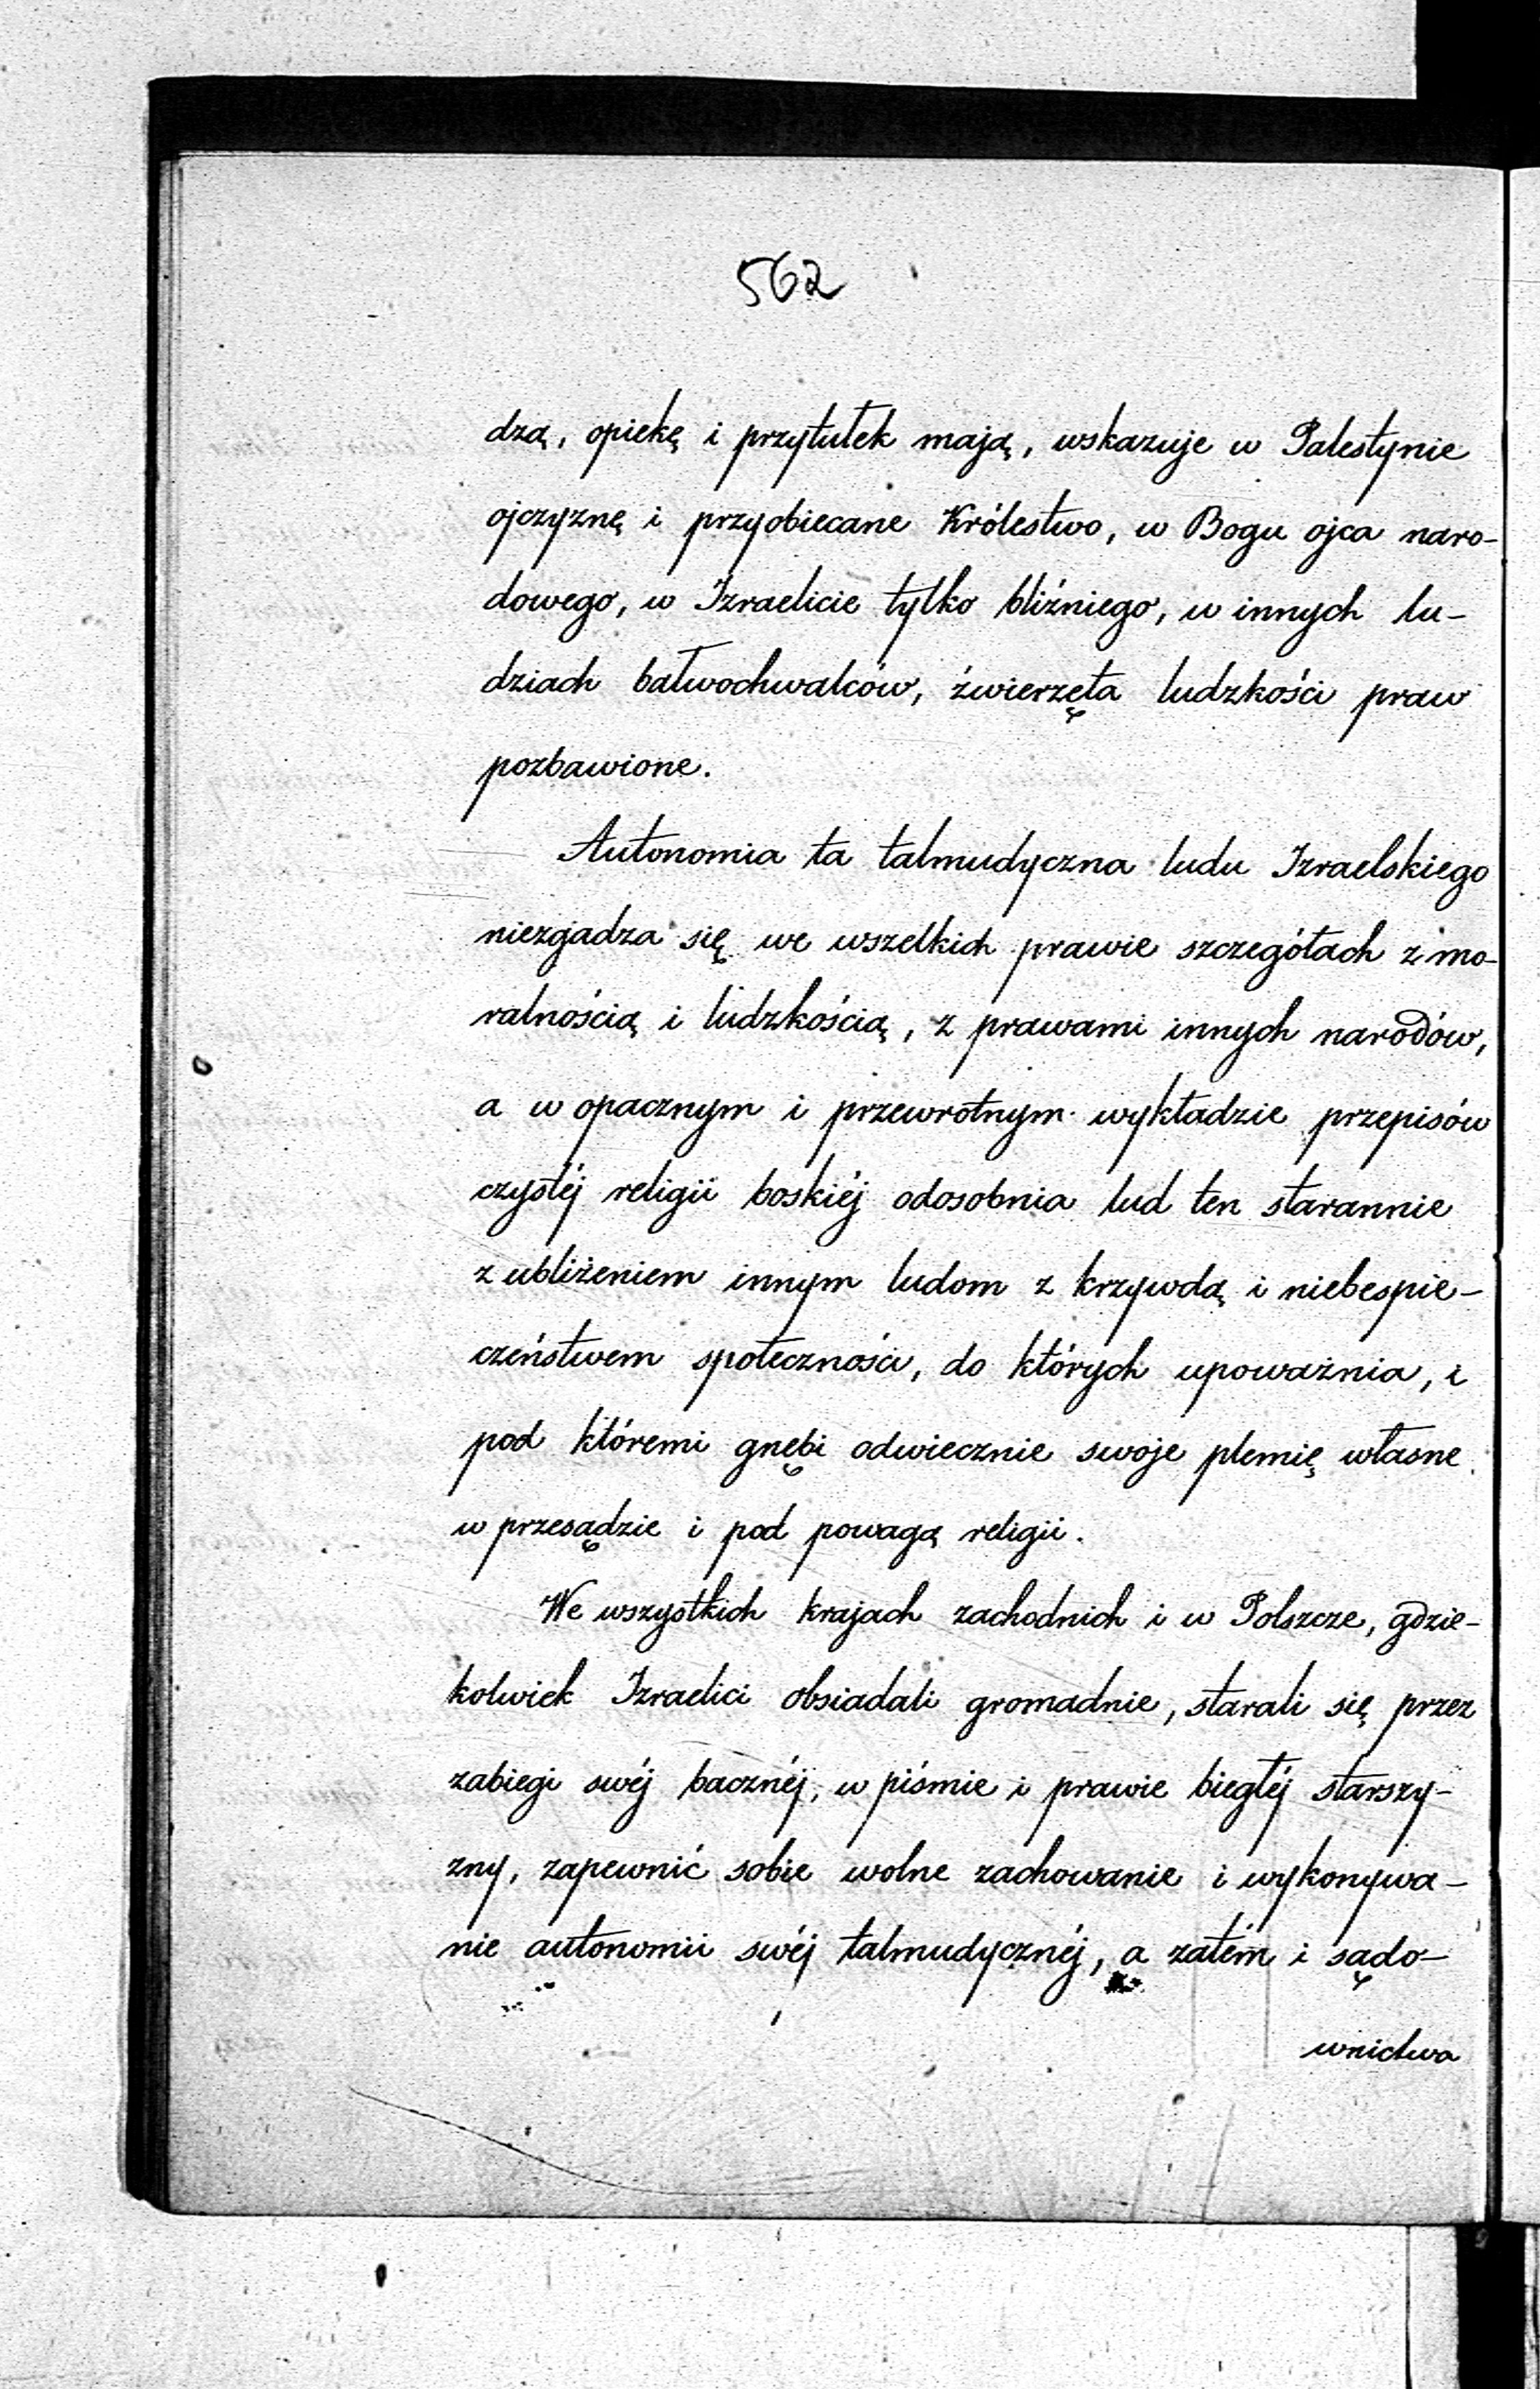 562
dzą, opiekę i przytułek mają, wskazuje w Palestynie
ojczyznę i przyobiecane Królestwo, w Bogu ojca naro-
dowego, w Izraelicie tylko bliźniego, w innych lu-
dziach bałwochwalców, źwierzęta ludzkości praw
pozbawione.
Autonomia ta talmudyczna ludu Izraelskiego
niezgadza się we wszelkich prawie szczegółach z mo-
ralnością i ludzkością, z prawami innych narodów,
a w opacznym i przewrotnym wykładzie przepisów
czystéj religii boskiéj odosobnia lud ten starannie
z ubliżeniem innym ludom z krzywdą i niebespie-
czeństwem społeczności, do których upoważnia, i
pod któremi gnębi odwiecznie swoje plemię własne
w przesądzie i pod powagą religii.
We wszystkich krajach zachodnich i w Polszcze, gdzie-
kolwiek Izraelici obsiadali gromadnie, starali się przez
zabiegi swéj bacznéj, w piśmie i prawie biegłéj starszy-
zny, zapewnić sobie wolne zachowanie i wykonywa-
nie autonomii swéj talmudycznéj, a zatém i sądo-
wnictwa